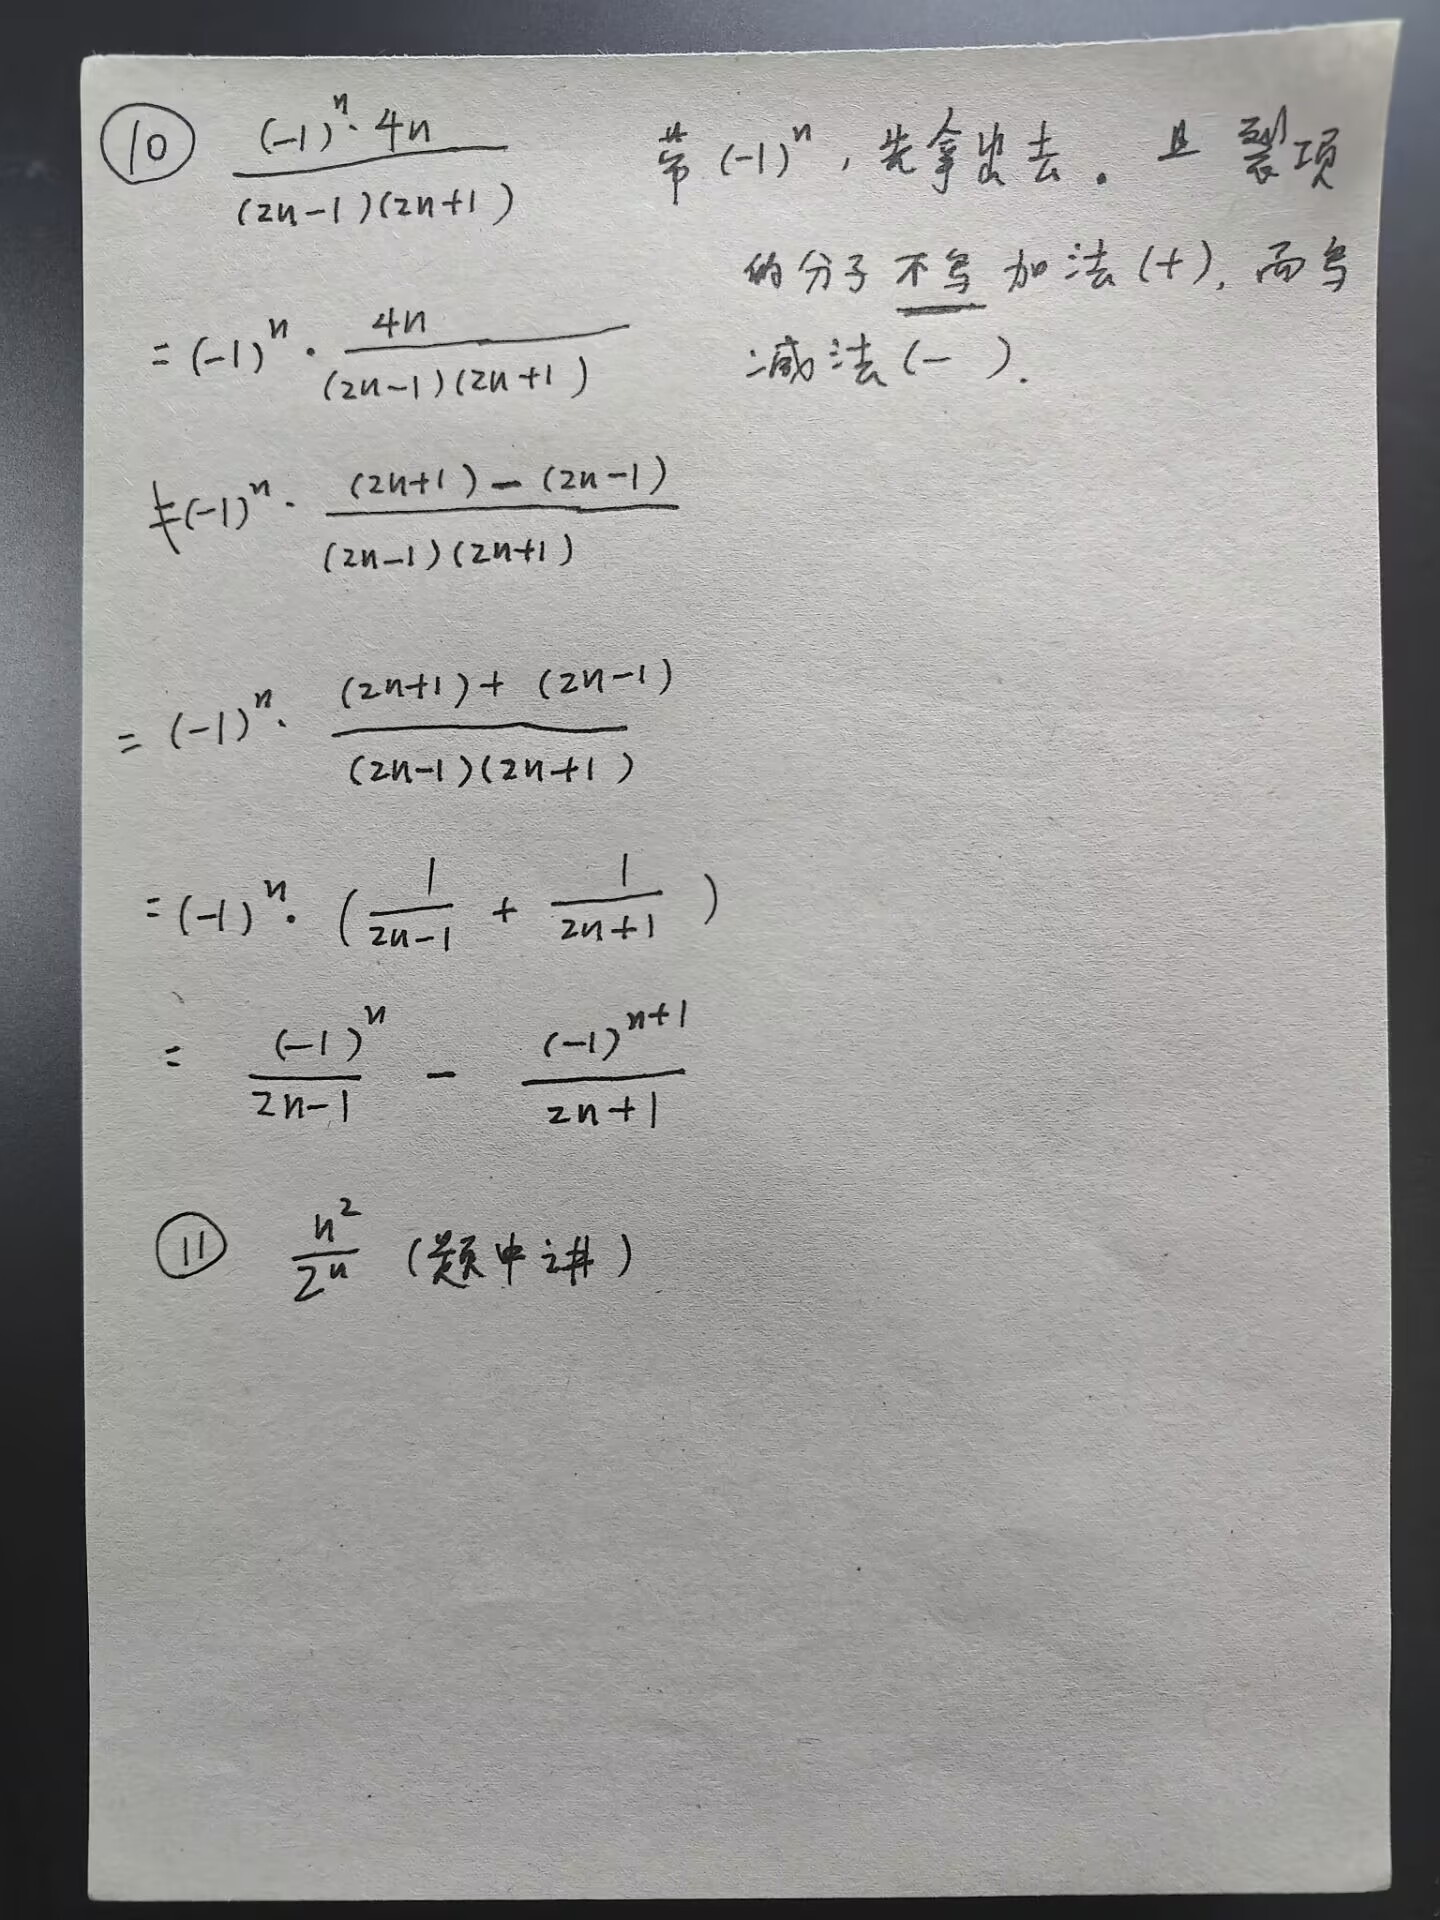 ⑩ \frac{(-1)^n·4n}{(2n-1)(2n+1)} 带(-1)^n，先拿出去。且裂项
的分子不写加法(+)，而写
= (-1)^n · \frac{4n}{(2n-1)(2n+1)} 减法(-).
≠ (-1)^n · \frac{(2n+1)-(2n-1)}{(2n-1)(2n+1)}
= (-1)^n · \frac{(2n+1)+(2n-1)}{(2n-1)(2n+1)}
= (-1)^n · (\frac{1}{2n-1} + \frac{1}{2n+1})
= \frac{(-1)^n}{2n-1} - \frac{(-1)^{n+1}}{2n+1}
⑪ \frac{n^2}{2^n} (题中讲)